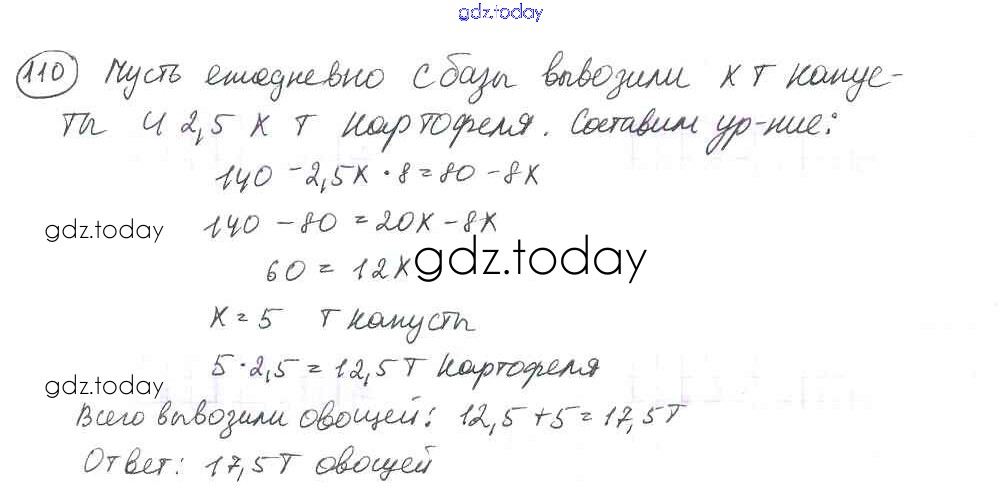 gdz.today
110 Пусть ежедневно с базы вывозили x т капус-
ты и 2,5 x т картофеля. Составим ур-ние:
140 - 2,5x · 8 = 80 - 8x
gdz.today 140 - 80 = 20x - 8x
60 = 12x gdz.today
x = 5 т капусты
5 · 2,5 = 12,5 т картофеля
gdz.today
Всего вывозили овощей: 12,5 + 5 = 17,5 т
Ответ: 17,5 т овощей